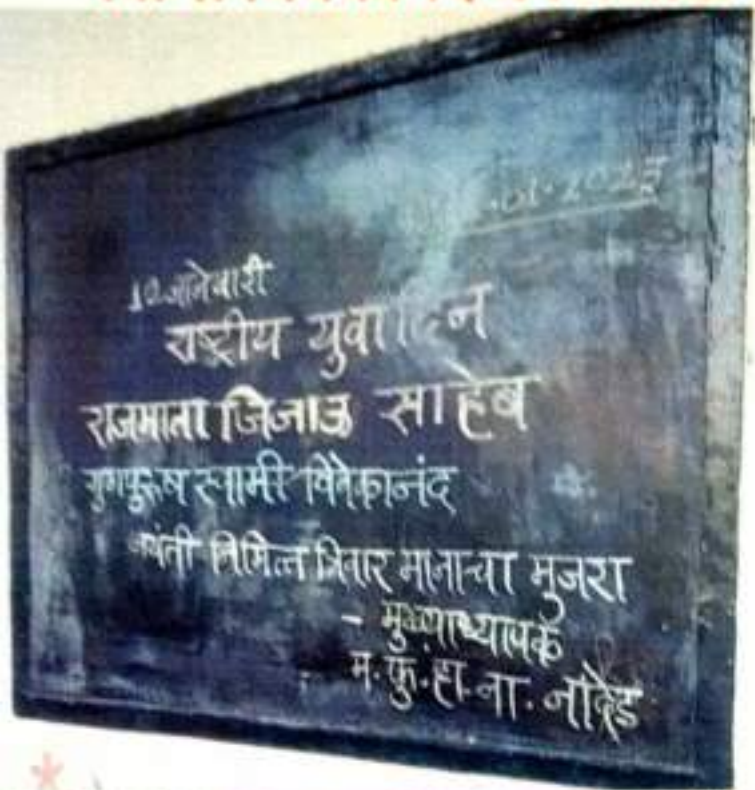 .01.2023
10 जानेवारी
राष्ट्रीय युवा दिन
राजमाता जिजाऊ साहेब
युगपुरुष स्वामी विवेकानंद
जयंती निमित्त त्रिवार मानाचा मुजरा
- मुख्याध्यापक
म.फु.हा.ना. नांदेड